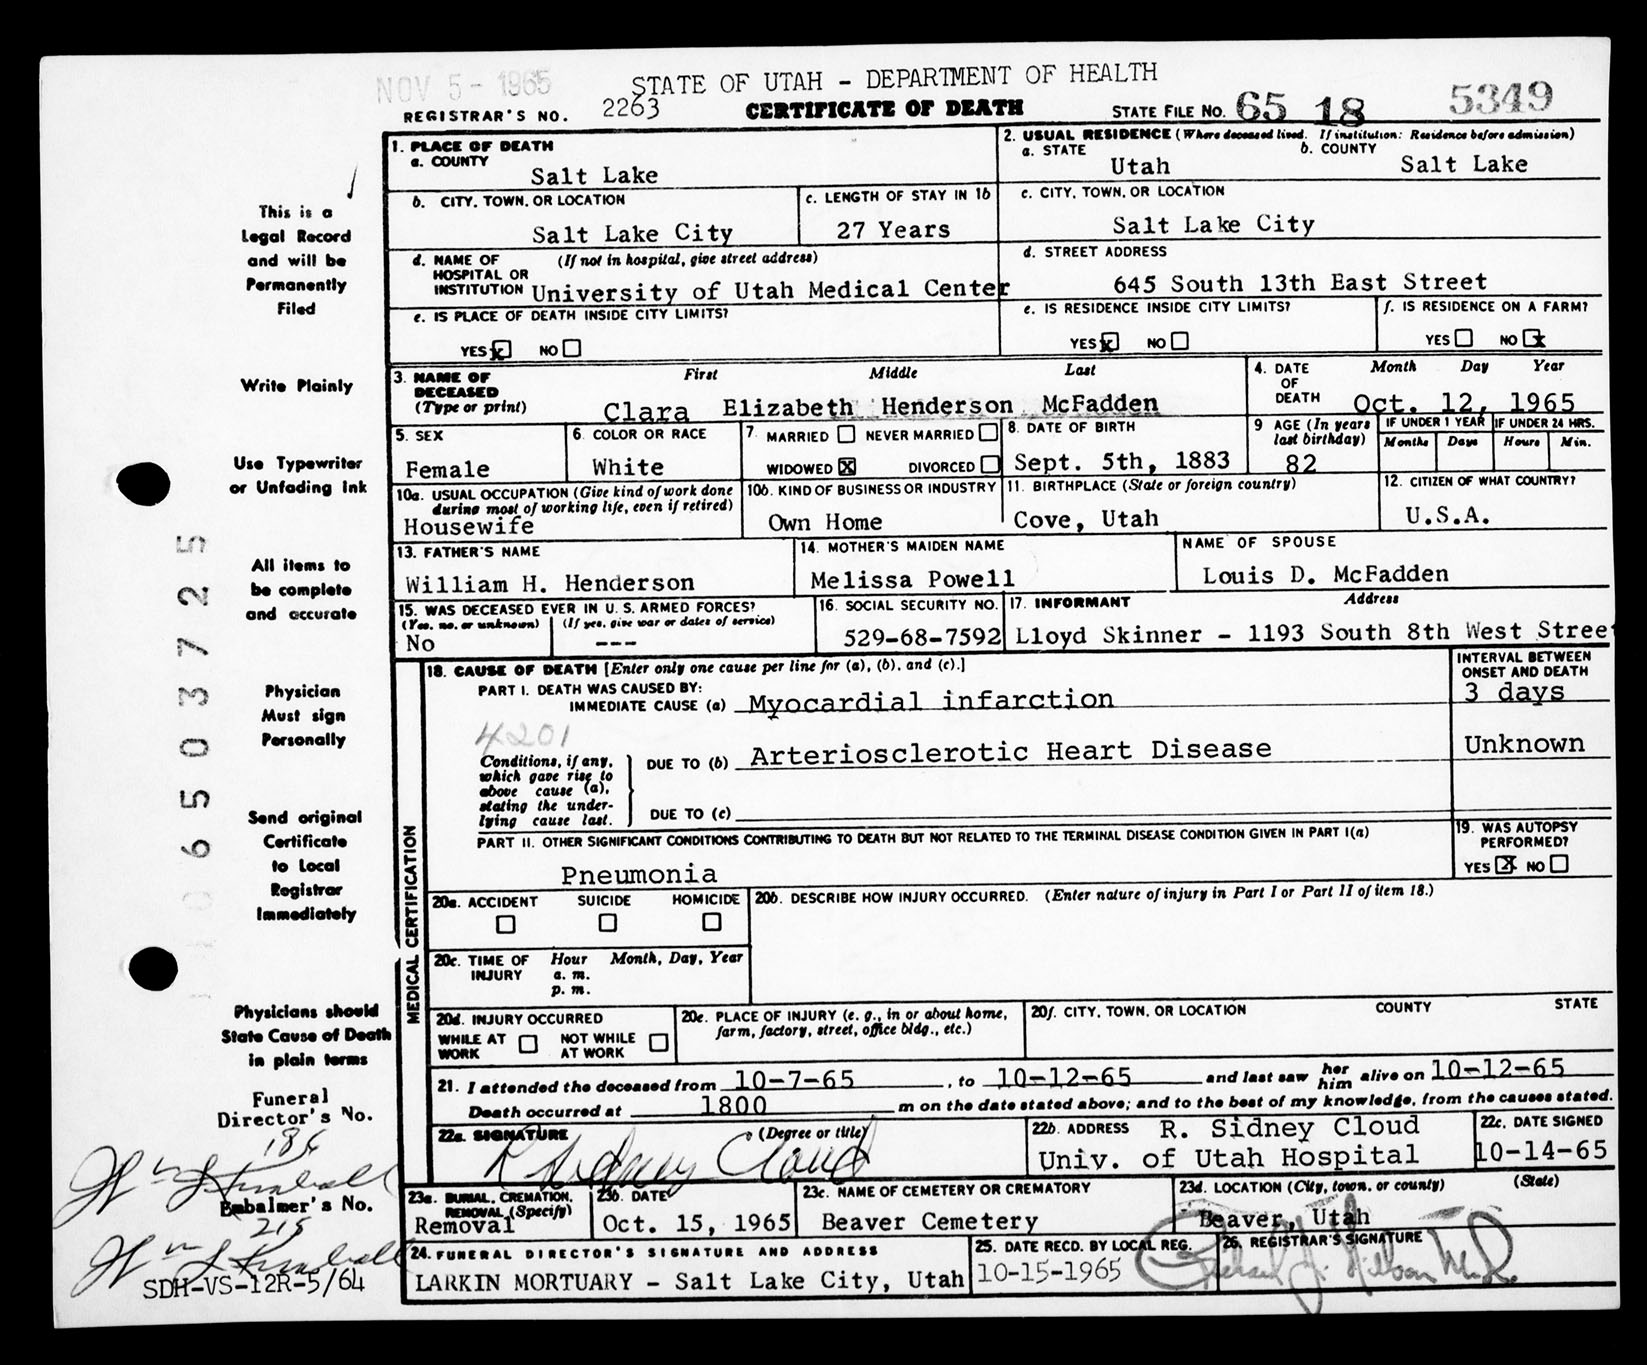 NOV 5 - 1965
STATE OF UTAH - DEPARTMENT OF HEALTH
REGISTRAR'S NO. 2263 CERTIFICATE OF DEATH STATE FILE NO. 65 18 5349
1. PLACE OF DEATH
a. COUNTY
Salt Lake
2. USUAL RESIDENCE (Where deceased lived. If institution: Residence before admission)
a. STATE b. COUNTY
Utah Salt Lake
b. CITY, TOWN, OR LOCATION
Salt Lake City
c. LENGTH OF STAY IN 1b
27 Years
c. CITY, TOWN, OR LOCATION
Salt Lake City
d. NAME OF (If not in hospital, give street address)
HOSPITAL OR
INSTITUTION University of Utah Medical Center
d. STREET ADDRESS
645 South 13th East Street
e. IS PLACE OF DEATH INSIDE CITY LIMITS?
YES x NO
e. IS RESIDENCE INSIDE CITY LIMITS?
YES x NO
f. IS RESIDENCE ON A FARM?
YES NO x
3. NAME OF First Middle Last
DECEASED
(Type or print) Clara Elizabeth Henderson McFadden
4. DATE Month Day Year
OF
DEATH Oct. 12, 1965
5. SEX
Female
6. COLOR OR RACE
White
7. MARRIED NEVER MARRIED
WIDOWED X DIVORCED
8. DATE OF BIRTH
Sept. 5th, 1883
9 AGE (In years
last birthday)
82
IF UNDER 1 YEAR IF UNDER 24 HRS.
Months Days Hours Min.
10a. USUAL OCCUPATION (Give kind of work done
during most of working life, even if retired)
Housewife
10b. KIND OF BUSINESS OR INDUSTRY
Own Home
11. BIRTHPLACE (State or foreign country)
Cove, Utah
12. CITIZEN OF WHAT COUNTRY?
U.S.A.
13. FATHER'S NAME
William H. Henderson
14. MOTHER'S MAIDEN NAME
Melissa Powell
NAME OF SPOUSE
Louis D. McFadden
15. WAS DECEASED EVER IN U. S. ARMED FORCES?
(Yes, no, or unknown) (If yes, give war or dates of service)
No ---
16. SOCIAL SECURITY NO.
529-68-7592
17. INFORMANT Address
Lloyd Skinner - 1193 South 8th West Stree
18. CAUSE OF DEATH [Enter only one cause per line for (a), (b), and (c).]
INTERVAL BETWEEN
ONSET AND DEATH
PART I. DEATH WAS CAUSED BY:
IMMEDIATE CAUSE (a) Myocardial infarction 3 days
4201
Conditions, if any,
which gave rise to
above cause (a),
stating the under-
lying cause last.
DUE TO (b) Arteriosclerotic Heart Disease Unknown
DUE TO (c)
PART II. OTHER SIGNIFICANT CONDITIONS CONTRIBUTING TO DEATH BUT NOT RELATED TO THE TERMINAL DISEASE CONDITION GIVEN IN PART I(a)
Pneumonia
19. WAS AUTOPSY
PERFORMED?
YES X NO
20a. ACCIDENT SUICIDE HOMICIDE
20b. DESCRIBE HOW INJURY OCCURRED. (Enter nature of injury in Part I or Part II of item 18.)
20c. TIME OF Hour Month, Day, Year
INJURY a. m.
p. m.
20d. INJURY OCCURRED
WHILE AT NOT WHILE
WORK AT WORK
20e. PLACE OF INJURY (e. g., in or about home,
farm, factory, street, office bldg., etc.)
20f. CITY, TOWN, OR LOCATION COUNTY STATE
MEDICAL CERTIFICATION
21. I attended the deceased from 10-7-65, to 10-12-65 and last saw her him alive on 10-12-65
Death occurred at 1800 m on the date stated above; and to the best of my knowledge, from the causes stated.
22a. SIGNATURE (Degree or title)
R Sidney Cloud
22b. ADDRESS R. Sidney Cloud
Univ. of Utah Hospital
22c. DATE SIGNED
10-14-65
23a. BURIAL, CREMATION,
REMOVAL (Specify)
Removal
23b. DATE
Oct. 15, 1965
23c. NAME OF CEMETERY OR CREMATORY
Beaver Cemetery
23d. LOCATION (City, town, or county) (State)
Beaver, Utah
24. FUNERAL DIRECTOR'S SIGNATURE AND ADDRESS
LARKIN MORTUARY - Salt Lake City, Utah
25. DATE RECD. BY LOCAL REG.
10-15-1965
26. REGISTRAR'S SIGNATURE
This is a
Legal Record
and will be
Permanently
Filed
Write Plainly
Use Typewriter
or Unfading Ink
All items to
be complete
and accurate
Physician
Must sign
Personally
Send original
Certificate
to Local
Registrar
Immediately
Physicians should
State Cause of Death
in plain terms
Funeral
Director's No.
186
Wm L Kimball
Embalmer's No.
215
Wm L Kimball
SDH-VS-12R-5/64
0 6 5 0 3 7 2 5